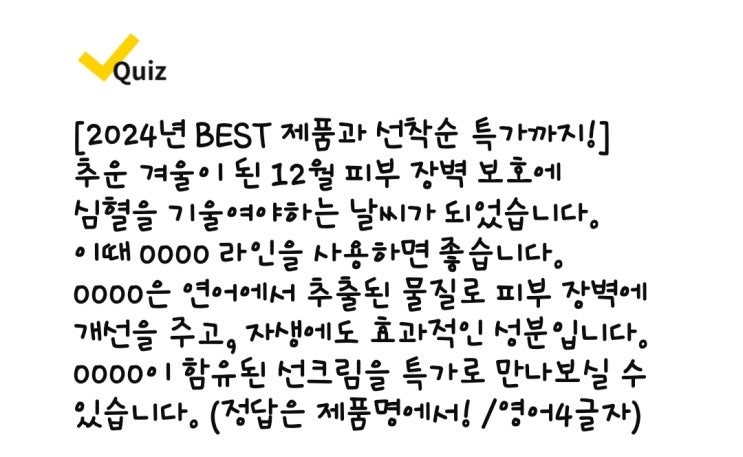 Quiz
[2024년 BEST 제품과 선착순 특가까지!]
추운 겨울이 된 12월 피부 장벽 보호에
심혈을 기울여야하는 날씨가 되었습니다.
이때 0000 라인을 사용하면 좋습니다.
0000은 연어에서 추출된 물질로 피부 장벽에
개선을 주고, 자생에도 효과적인 성분입니다.
0000이 함유된 선크림을 특가로 만나보실 수
있습니다. (정답은 제품명에서! /영어4글자)